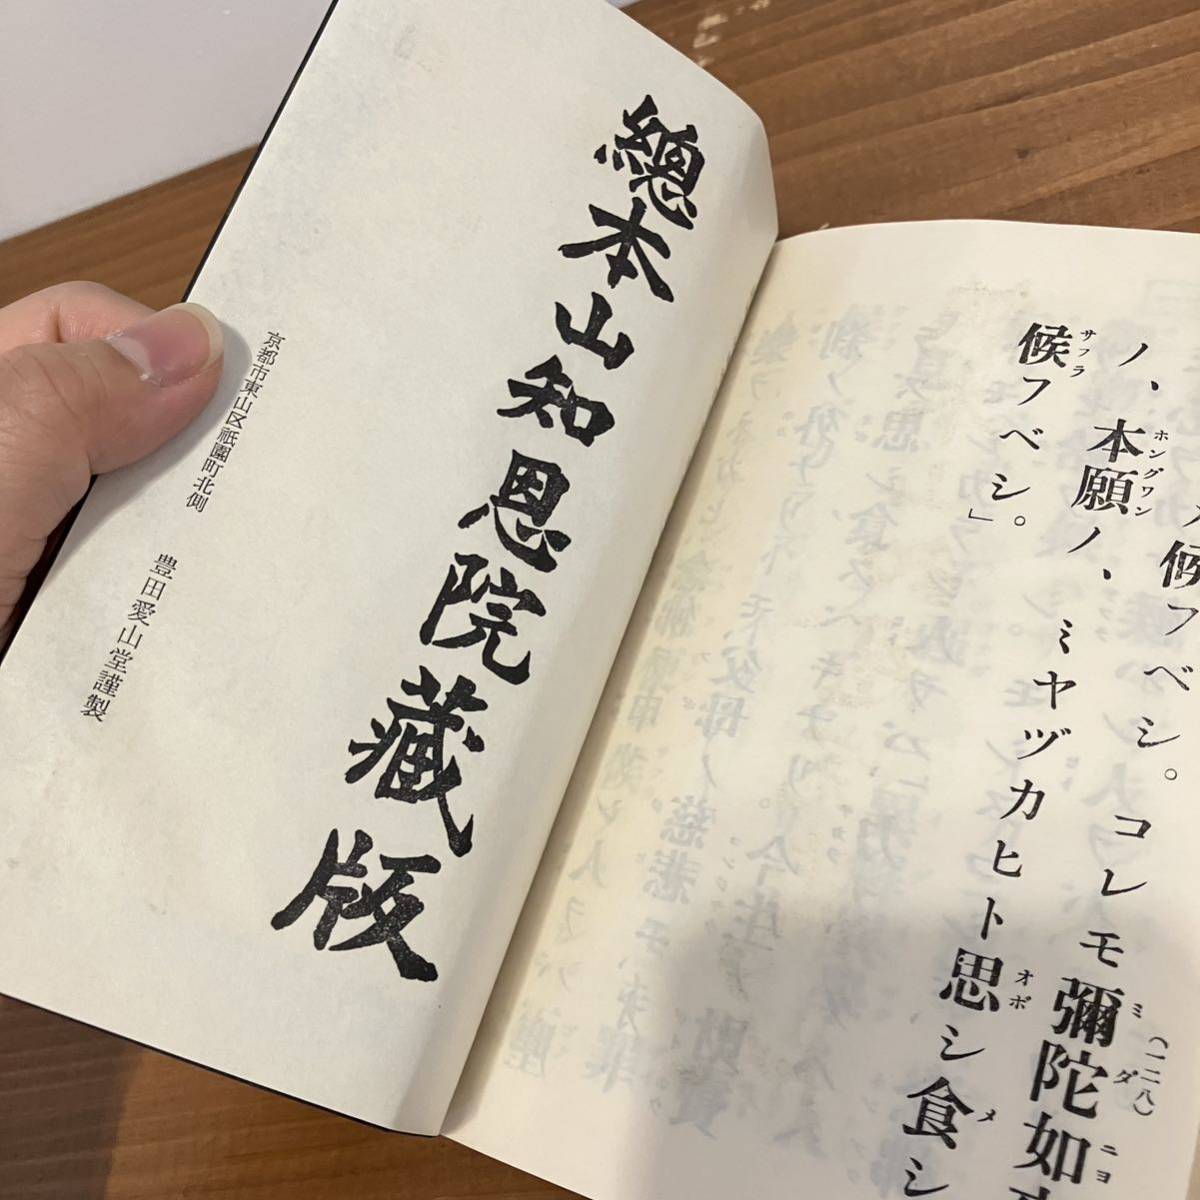 候フベシ。
ノ、本願ノ、ミヤヅカヒト思シ食シ
候フベシ。」
コレモ彌陀如
(一二八)
總本山知恩院藏版
京都市東山区祇園町北側 豊田愛山堂謹製